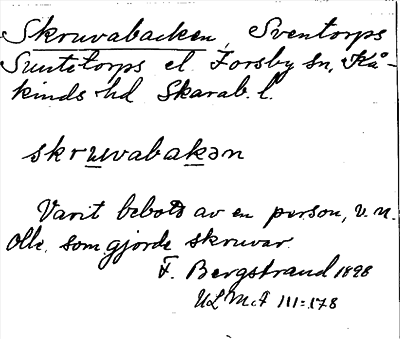 Skruvabacken, Sventorps
Suntetorps el. Forsby sn, Kå-
kinds hd Skarab. l.
skruvabakən
Varit bebodd av en person, v. n.
Olle, som gjorde skruvar.
F. Bergstrand 1898
ULMA III:178